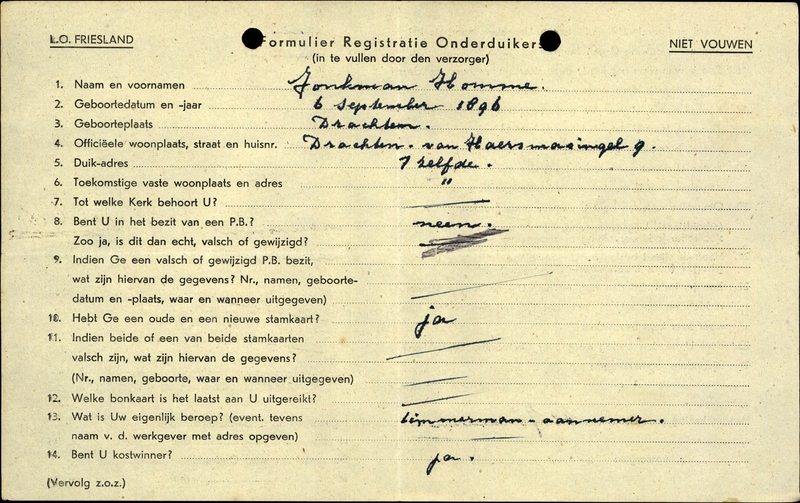 L.O. FRIESLAND
Formulier Registratie Onderduikers
NIET VOUWEN
(in te vullen door den verzorger)
1. Naam en voornamen Jonkman Homme.
2. Geboortedatum en -jaar 6 September 1896
3. Geboorteplaats Drachten.
4. Officiëele woonplaats, straat en huisnr. Drachten. van Haersmasingel 9.
5. Duik-adres 't zelfde.
6. Toekomstige vaste woonplaats en adres "
7. Tot welke Kerk behoort U?
8. Bent U in het bezit van een P.B.? neen.
Zoo ja, is dit dan echt, valsch of gewijzigd?
9. Indien Ge een valsch of gewijzigd P.B. bezit,
wat zijn hiervan de gegevens? Nr., namen, geboorte-
datum en -plaats, waar en wanneer uitgegeven)
10. Hebt Ge een oude en een nieuwe stamkaart? ja
11. Indien beide of een van beide stamkaarten
valsch zijn, wat zijn hiervan de gegevens?
(Nr., namen, geboorte, waar en wanneer uitgegeven)
12. Welke bonkaart is het laatst aan U uitgereikt?
13. Wat is Uw eigenlijk beroep? (event. tevens timmerman - aannemer.
naam v. d. werkgever met adres opgeven)
14. Bent U kostwinner? ja.
(Vervolg z.o.z.)